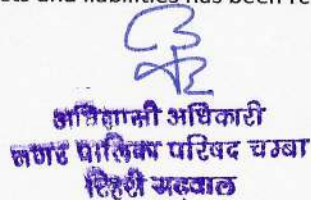 and liabilities has been
अधिशासी अधिकारी
नगर पालिका परिषद चम्बा
टिहरी गढ़वाल